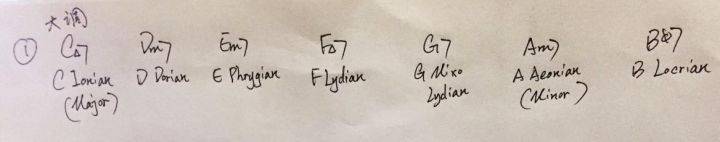 大调
① C△7 Dm7 Em7 F△7 G7 Am7 Bø7
C Ionian D Dorian E Phrygian F Lydian G Mixo A Aeonian B Locrian
(Major) lydian (Minor)